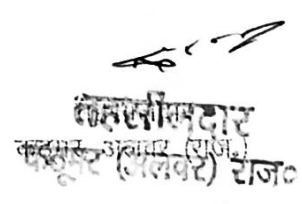 तहसीलदार
कठूमर अलवर (राज.)
(अलवर) राज०